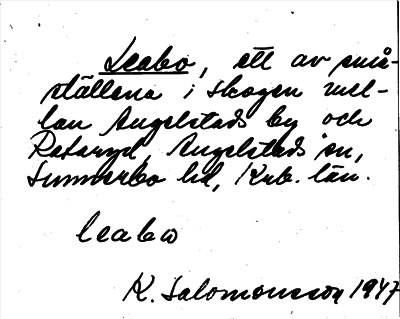 Leabo, ett av små-
ställena i skogen mel-
lan Angelstads by och
Rataryd, Angelstads sn,
Sunnerbo hd, Krb. län.
leabo
K. Salomonsson 1947